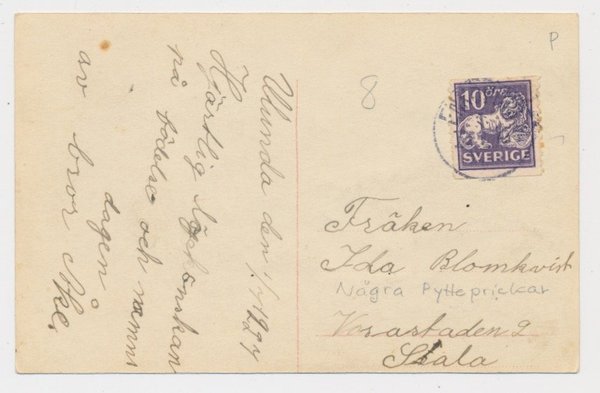 den 1/7 1924
Hjärtlig lyckönskan
på födelse och namns
dagen
av bror Åke.
8
P
10 öre
SVERIGE
Fröken
Ida Blomkvist
Några Pytteprickar
2
Sala